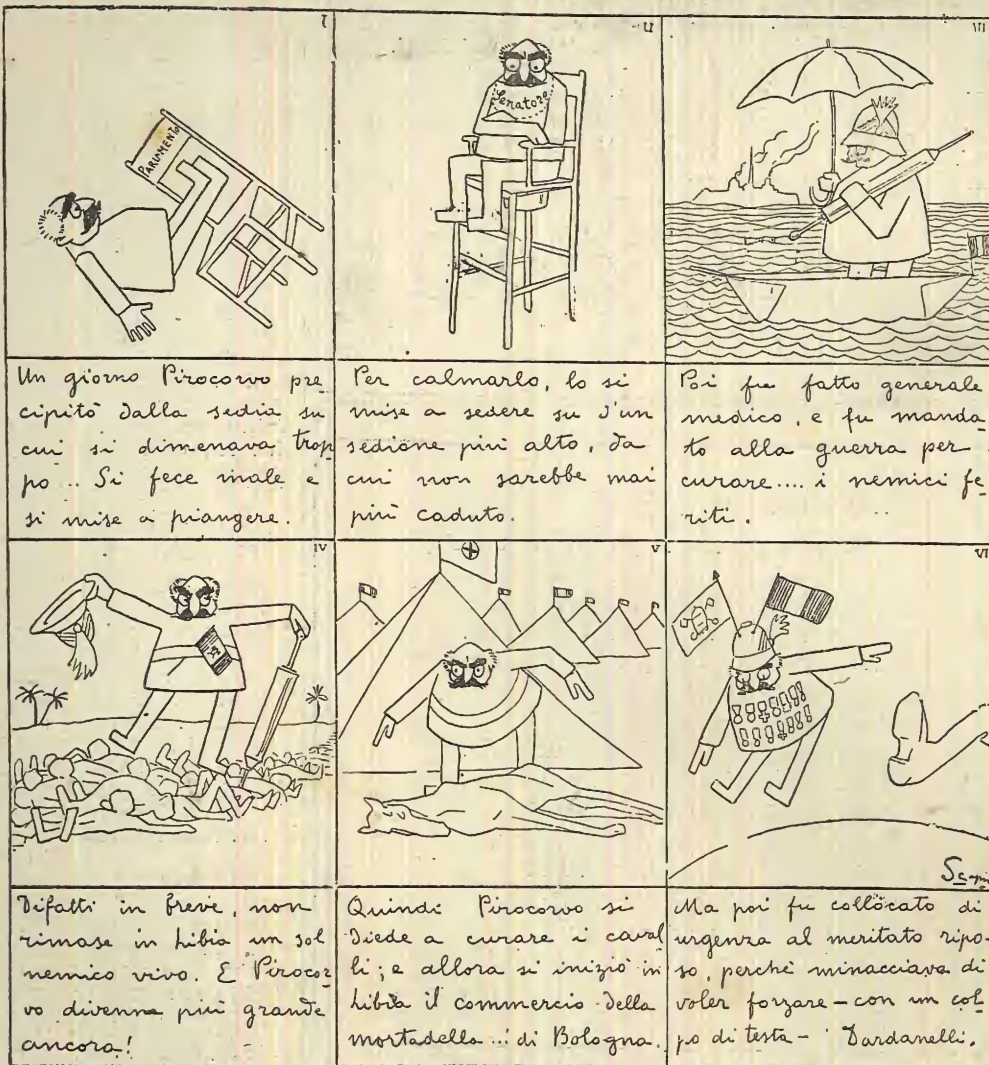 I
PARLAMENTO
Un giorno Pirocorvo pre
cipitò dalla sedia su
cui si dimenava trop
po .. Si fece male e
si mise a piangere.
II
Senatore
Per calmarlo, lo si
mise a sedere su d'un
sedione più alto, da
cui non sarebbe mai
più caduto.
III
Poi fu fatto generale
medico, e fu manda-
to alla guerra per
curare.... i nemici fe-
riti.
IV
Difatti in breve, non
rimase in Libia un sol
nemico vivo. E Pirocor
vo divenne più grande
ancora!
V
Quindi Pirocorvo si
diede a curare i caval
li; e allora si iniziò in
Libia il commercio della
mortadella ...! di Bologna.
VI
Ma poi fu collocato di
urgenza al meritato ripo-
so, perchè minacciava di
voler forzare – con un col
po di testa – i Dardanelli.